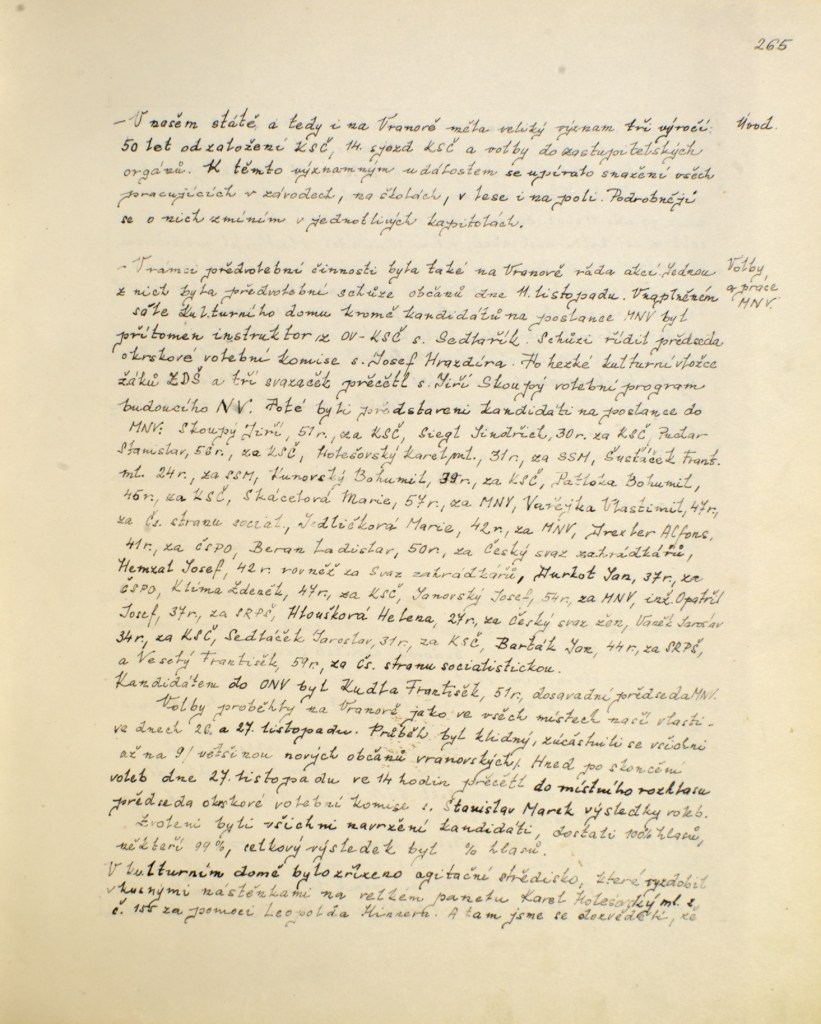 265
— V našem státě a tedy i na Vranově měla veliký význam tři výročí: Úvod.
50 let od založení KSČ, 14. sjezd KSČ a volby do zastupitelských
orgánů. K těmto významným událostem se upíralo snažení všech
pracujících v závodech, na školách, v lese i na poli. Podrobněji
se o nich zmíním v jednotlivých kapitolách.
— V rámci předvolební činnosti byla také na Vranově řada akcí. Jednou Volby
z nich byla předvolební schůze občanů dne 11. listopadu. V naplněném a práce
sále kulturního domu kromě kandidátů na poslance MNV byl MNV.
přítomen instruktor z OV-KSČ s. Sedlařík. Schůzi řídil předseda
okrskové volební komise s. Josef Hrazdíra. Po hezké kulturní vložce
žáků ZDŠ a tří svazaček přečetl s. Jiří Skoupý volební program
budoucího NV. Poté byli představeni kandidáti na poslance do
MNV: Skoupý Jiří, 51 r., za KSČ, Siegl Jindřich, 30 r. za KSČ,
Stanislav, 56 r., za KSČ, Holešovský Karel, ml., 31 r., za SSM, Frant.
ml. 24 r., za SSM, Kunovský Bohumil, 39 r., za KSČ, Patloka Bohumil,
46 r., za KSČ, Skácelová Marie, 57 r., za MNV, Vařejka Vlastimil, 47 r.,
za Čs. stranu social., Jedličková Marie, 42 r., za MNV, Drexler Alfons,
41 r., za ČSPO, Beran Ladislav, 50 r., za Český svaz zahrádkářů,
Hemzal Josef, 42 r. rovněž za Svaz zahrádkářů, Durkot Jan, 37 r., za
ČSPO, Klíma Zdeněk, 47 r., za KSČ, Janovský Josef, 54 r., za MNV, inž. Opatřil
Josef, 37 r., za SRPŠ, Hloušková Helena, 27 r., za Český svaz žen, Vaněk Jaroslav
34 r., za KSČ, Sedláček Jaroslav, 31 r., za KSČ, Barták Jan, 44 r., za SRPŠ,
a Veselý František, 59 r., za Čs. stranu socialistickou.
Kandidátem do ONV byl Kudla František, 51 r., dosavadní předseda MNV.
Volby proběhly na Vranově jako ve všech místech naší vlasti
ve dnech 26. a 27. listopadu. Průběh byl klidný, zúčastnili se všichni
až na 9 / většinou nových občanů vranovských /. Hned po skončení
voleb dne 27. listopadu ve 14 hodin přečetl do místního rozhlasu
předseda okrskové volební komise s. Stanislav Marek výsledky voleb.
Zvoleni byli všichni navržení kandidáti, dostali 100% hlasů,
někteří 99%, celkový výsledek byl % hlasů.
V kulturním domě bylo zřízeno agitační středisko, které vyzdobil
vkusnými nástěnkami na velkém panelu Karel Holešovský ml. z
č. 155 za pomoci Leopolda A tam jsme se dozvěděli, že